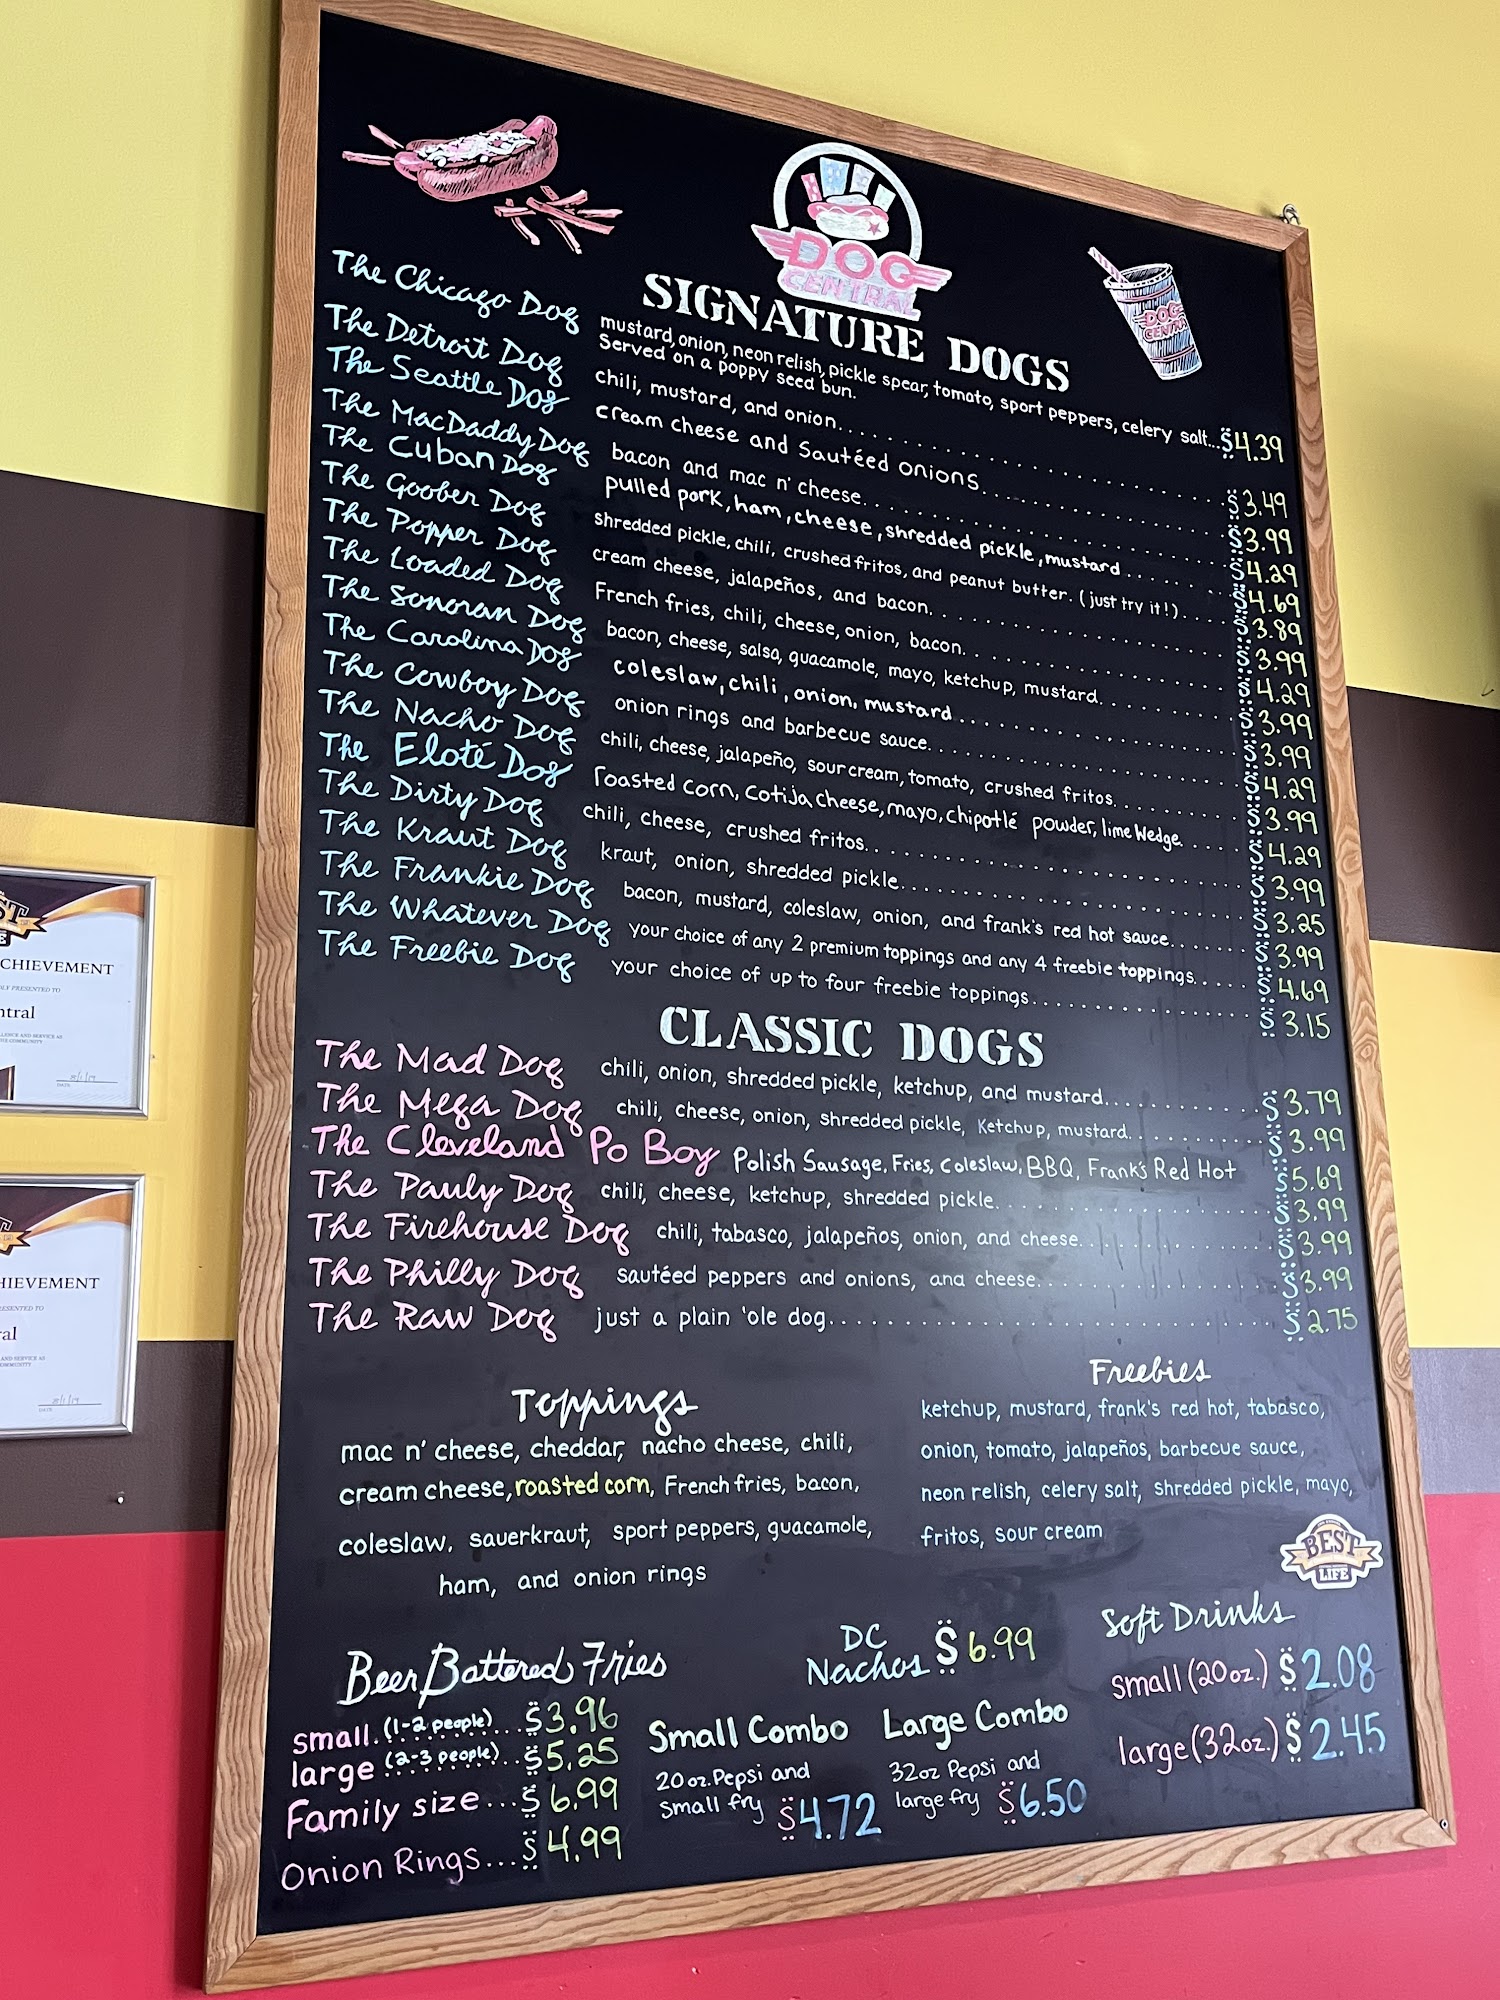 DOG
CENTRAL
DOG
CENTRAL
SIGNATURE DOGS
The Chicago Dog mustard, onion, neon relish, pickle spear, tomato, sport peppers, celery salt...$4.39
Served on a poppy seed bun.
The Detroit Dog chili, mustard, and onion. $3.49
The Seattle Dog cream cheese and Sautéed onions. $3.99
The MacDaddy Dog bacon and mac n' cheese. $4.29
The Cuban Dog pulled pork, ham, cheese, shredded pickle, mustard $4.69
The Goober Dog shredded pickle, chili, crushed fritos, and peanut butter. (just try it!) $3.89
The Popper Dog cream cheese, jalapeños, and bacon. $3.99
The Loaded Dog French fries, chili, cheese, onion, bacon. $4.29
The Sonoran Dog bacon, cheese, salsa, guacamole, mayo, ketchup, mustard. $3.99
The Carolina Dog coleslaw, chili, onion, mustard $3.99
The Cowboy Dog onion rings and barbecue sauce. $4.29
The Nacho Dog chili, cheese, jalapeño, sour cream, tomato, crushed fritos. $3.99
The Eloté Dog roasted corn, Cotija cheese, mayo, chipotlé powder, lime Wedge. $4.29
The Dirty Dog chili, cheese, crushed fritos. $3.99
The Kraut Dog kraut, onion, shredded pickle. $3.25
The Frankie Dog bacon, mustard, coleslaw, onion, and frank's red hot sauce. $3.99
The Whatever Dog your choice of any 2 premium toppings and any 4 freebie toppings. $4.69
The Freebie Dog your choice of up to four freebie toppings. $3.15
CLASSIC DOGS
The Mad Dog chili, onion, shredded pickle, ketchup, and mustard. $3.79
The Mega Dog chili, cheese, onion, shredded pickle, Ketchup, mustard. $3.99
The Cleveland Po Boy Polish Sausage, Fries, Coleslaw, BBQ, Frank's Red Hot $5.69
The Pauly Dog chili, cheese, ketchup, shredded pickle. $3.99
The Firehouse Dog chili, tabasco, jalapeños, onion, and cheese. $3.99
The Philly Dog sautéed peppers and onions, and cheese. $3.99
The Raw Dog just a plain 'ole dog. $2.75
Toppings
mac n' cheese, cheddar, nacho cheese, chili,
cream cheese, roasted corn, French fries, bacon,
coleslaw, sauerkraut, sport peppers, guacamole,
ham, and onion rings
Freebies
ketchup, mustard, frank's red hot, tabasco,
onion, tomato, jalapeños, barbecue sauce,
neon relish, celery salt, shredded pickle, mayo,
fritos, sour cream
BEST
LIFE
Beer Battered Fries
small. (1-2 people)...$3.96
large (2-3 people)..$5.25
Family size...$6.99
Onion Rings...$4.99
DC
Nachos $6.99
Small Combo
20 oz. Pepsi and
small fry $4.72
Large Combo
32oz Pepsi and
large fry $6.50
Soft Drinks
small (20oz.) $2.08
large (32oz.) $2.45
CHIEVEMENT
PRESENTED TO
ntral
HIEVEMENT
ESENTED TO
ral